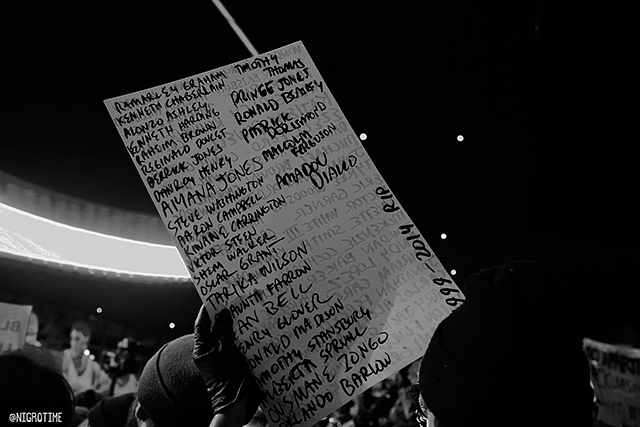 RAMARLEY GRAHAM
KENNETH CHAMBERLAIN
ALONZO ASHLEY
KENNETH HARDING
RAHEIM BROWN
REGINALD DOUCET
DERRICK JONES
DANROY HENRY
AIYANA JONES
STEVE WASHINGTON
AARON CAMPBELL
KIWANE CARRINGTON
VICTOR STEEN
SHEM WALKER
OSCAR GRANT
TARIKA WILSON
FARROW
AN BELL
HENRY GLOVER
RONALD MADISON
TIMOTHY STANSBURY
ALBERTA SPRUILL
OUSMANE ZONGO
ORLANDO BARLOW
TIMOTHY
THOMAS
PRINCE JONES
RONALD BEASLEY
PATRICK
DORISMOND
MALCOLM
FERGUSON
AMADOU
DIALLO
999-2014 RIP
@NIGROTIME